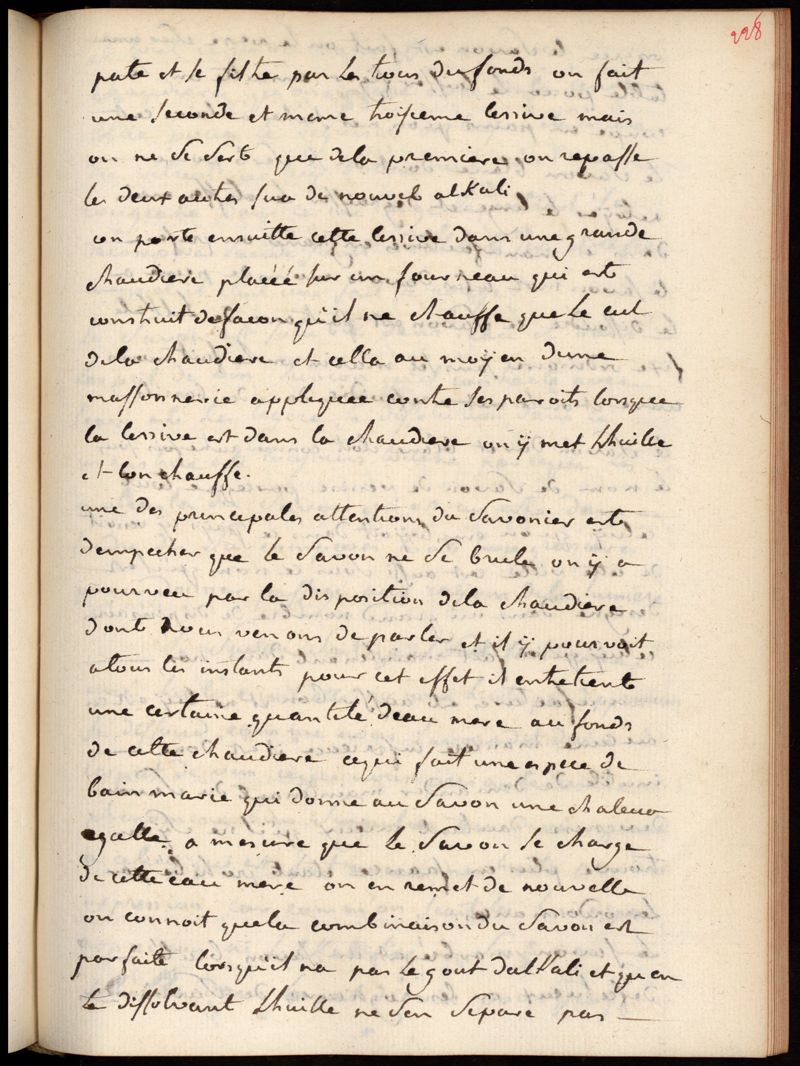 228
pate et se filtre par les trous du fonds on fait
une seconde et meme troisieme lessive mais
on ne se sert que dela premiere on repasse
les deux autres sur de nouvel alkali
on porte ensuitte cette lessive dans une grande
chaudiere placéé sur un fourneau qui est
construit de facon qu'il ne chauffe que le cul
dela chaudiere et cella au moÿen dune
massonnerie appliquee contre ses paroits lorsque
la lessive est dans la chaudiere on ÿ met lhuille
et lon chauffe.
une des principales attentions du savonier est
dempecher que le savon ne se brule on ÿ a
pourveu par la disposition dela chaudiere
dont nous venons de parler et il ÿ pourvoit
atous les instants pour cet effet il entretient
une certaine quantité deau mere au fonds
de cette chaudiere cequi fait une espece de
bain marie qui donne au savon une chaleur
egalle. a mesure que le savon se charge
de cette eau mere on en remet de nouvelle
on connoit quela combinaison du savon est
parfaite lorsqu'il na pas le gout dalkali et quen
le dissolvant lhuille ne sen separe pas —